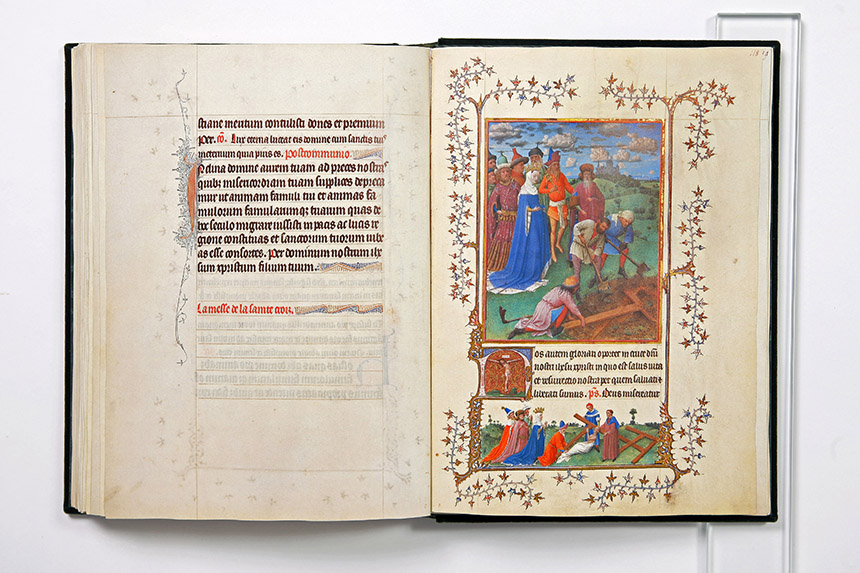 stiane meritum contulisti dones et premium
per. co. Lux eterna luceat eis domine cum sanctis tuis
ineternum quia pius es. Postcommunio.
nclina domine aurem tuam ad preces nostras
quibus misericordiam tuam supplices depreca
mur ut animam famuli tui et animas fa
mulorum famularumq; tuarum quas de
hoc seculo migrare iussisti in pacis ac lucis re
gione constituas et sanctorum tuorum iube
as esse consortes. Per dominum nostrum ihe
sum xpistum filium tuum.
La messe de la sainte croix.
os autem gloriari oportet in cruce dni
nostri ihesu xpisti in quo est salus vita
et resurrectio nostra per quem saluati et
liberati sumus. ps. Deus misereatur